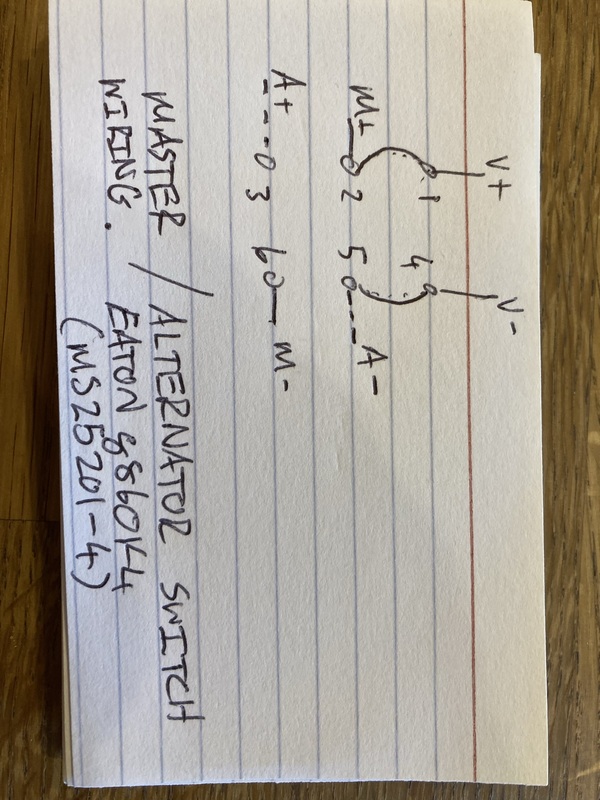 V+ V-
1 4
M+ 2 5 A-
A+ 3 6 M-
MASTER / ALTERNATOR SWITCH
WIRING. EATON 8860K4
(MS25201-4)